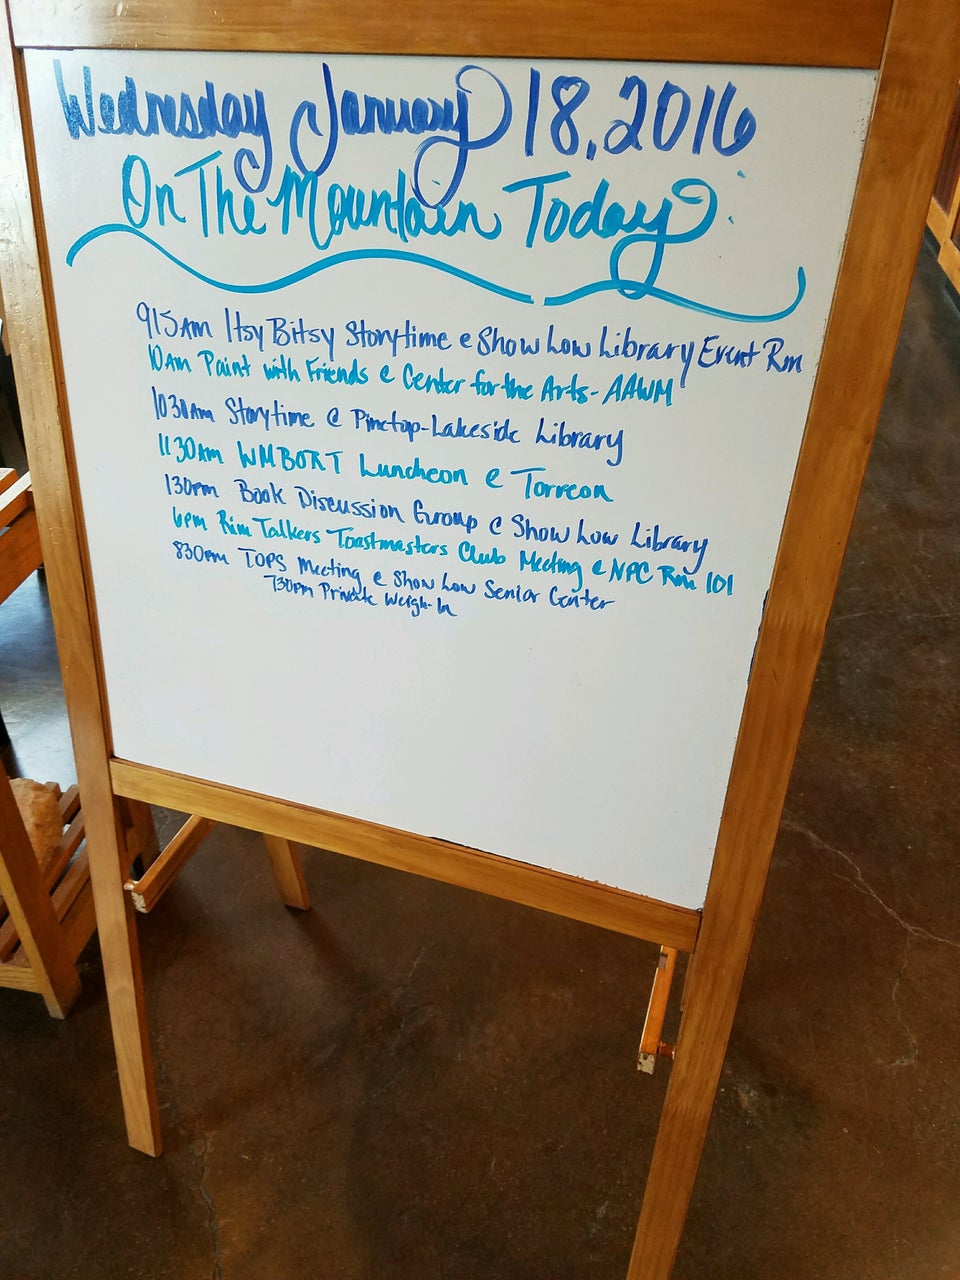 Wednesday January 18, 2016
On The Mountain Today:
915AM Itsy Bitsy Storytime @ Show Low Library Event Rm
10AM Paint with Friends @ Center for the Arts - AAWM
1030AM Storytime @ Pinetop-Lakeside Library
1130AM WMBORT Luncheon @ Torreon
130pm Book Discussion Group @ Show Low Library
6pm Rim Talkers Toastmasters Club Meeting @ NPC Rm 101
830pm TOPS Meeting @ Show Low Senior Center
730pm Private Weigh-In